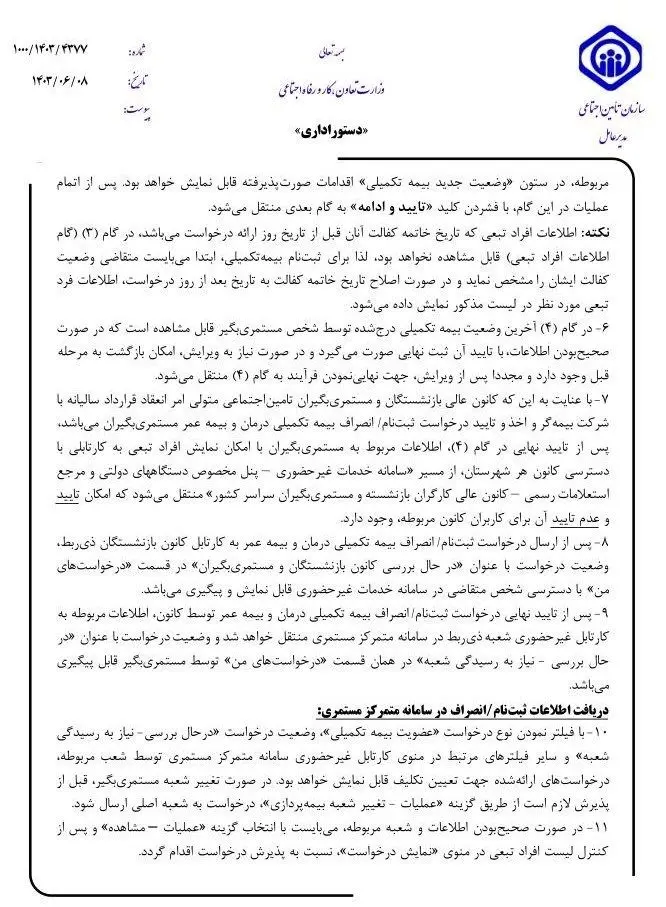 بسمه تعالی
شماره: ۱۰۰۰/۱۴۰۳/۴۳۷۷
وزارت تعاون، کار و رفاه اجتماعی
تاریخ: ۱۴۰۳/۰۶/۰۸
پیوست:
سازمان تأمین اجتماعی
مدیرعامل
«دستور اداری»
مربوطه، در ستون «وضعیت جدید بیمه تکمیلی» اقدامات صورت‌پذیرفته قابل نمایش خواهد بود. پس از اتمام
عملیات در این گام، با فشردن کلید «تایید و ادامه» به گام بعدی منتقل می‌شود.
نکته: اطلاعات افراد تبعی که تاریخ خاتمه کفالت آنان قبل از تاریخ روز ارائه درخواست می‌باشد، در گام (۳) (گام
اطلاعات افراد تبعی) قابل مشاهده نخواهد بود، لذا برای ثبت‌نام بیمه‌تکمیلی، ابتدا می‌بایست متقاضی وضعیت
کفالت ایشان را مشخص نماید و در صورت اصلاح تاریخ خاتمه کفالت به تاریخ بعد از روز درخواست، اطلاعات فرد
تبعی مورد نظر در لیست مذکور نمایش داده می‌شود.
۶- در گام (۴) آخرین وضعیت بیمه تکمیلی درج‌شده توسط شخص مستمری‌بگیر قابل مشاهده است که در صورت
صحیح‌بودن اطلاعات، با تایید آن ثبت نهایی صورت می‌گیرد و در صورت نیاز به ویرایش، امکان بازگشت به مرحله
قبل وجود دارد و مجددا پس از ویرایش، جهت نهایی‌نمودن فرآیند به گام (۴) منتقل می‌شود.
۷- با عنایت به این که کانون عالی بازنشستگان و مستمری‌بگیران تامین‌اجتماعی متولی امر انعقاد قرارداد سالیانه با
شرکت بیمه‌گر و اخذ و تایید درخواست ثبت‌نام/ انصراف بیمه تکمیلی درمان و بیمه عمر مستمری‌بگیران می‌باشد،
پس از تایید نهایی در گام (۴)، اطلاعات مربوط به مستمری‌بگیران با امکان نمایش افراد تبعی به کارتابلی با
دسترسی کانون هر شهرستان، از مسیر «سامانه خدمات غیرحضوری – پنل مخصوص دستگاههای دولتی و مرجع
استعلامات رسمی – کانون عالی کارگران بازنشسته و مستمری‌بگیران سراسر کشور» منتقل می‌شود که امکان تایید
و عدم تایید آن برای کاربران کانون مربوطه، وجود دارد.
۸- پس از ارسال درخواست ثبت‌نام/ انصراف بیمه تکمیلی درمان و بیمه عمر به کارتابل کانون بازنشستگان ذی‌ربط،
وضعیت درخواست با عنوان «در حال بررسی کانون بازنشستگان و مستمری‌بگیران» در قسمت «درخواست‌های
من» با دسترسی شخص متقاضی در سامانه خدمات غیرحضوری قابل نمایش و پیگیری می‌باشد.
۹- پس از تایید نهایی درخواست ثبت‌نام/ انصراف بیمه تکمیلی درمان و بیمه عمر توسط کانون، اطلاعات مربوطه به
کارتابل غیرحضوری شعبه ذی‌ربط در سامانه متمرکز مستمری منتقل خواهد شد و وضعیت درخواست با عنوان «در
حال بررسی - نیاز به رسیدگی شعبه» در همان قسمت «درخواست‌های من» توسط مستمری‌بگیر قابل پیگیری
می‌باشد.
دریافت اطلاعات ثبت‌نام/انصراف در سامانه متمرکز مستمری:
۱۰- با فیلتر نمودن نوع درخواست «عضویت بیمه تکمیلی»، وضعیت درخواست «درحال بررسی- نیاز به رسیدگی
شعبه» و سایر فیلترهای مرتبط در منوی کارتابل غیرحضوری سامانه متمرکز مستمری توسط شعب مربوطه،
درخواست‌های ارائه‌شده جهت تعیین تکلیف قابل نمایش خواهد بود. در صورت تغییر شعبه مستمری‌بگیر، قبل از
پذیرش لازم است از طریق گزینه «عملیات - تغییر شعبه بیمه‌پردازی»، درخواست به شعبه اصلی ارسال شود.
۱۱- در صورت صحیح‌بودن اطلاعات و شعبه مربوطه، می‌بایست با انتخاب گزینه «عملیات – مشاهده» و پس از
کنترل لیست افراد تبعی در منوی «نمایش درخواست»، نسبت به پذیرش درخواست اقدام گردد.